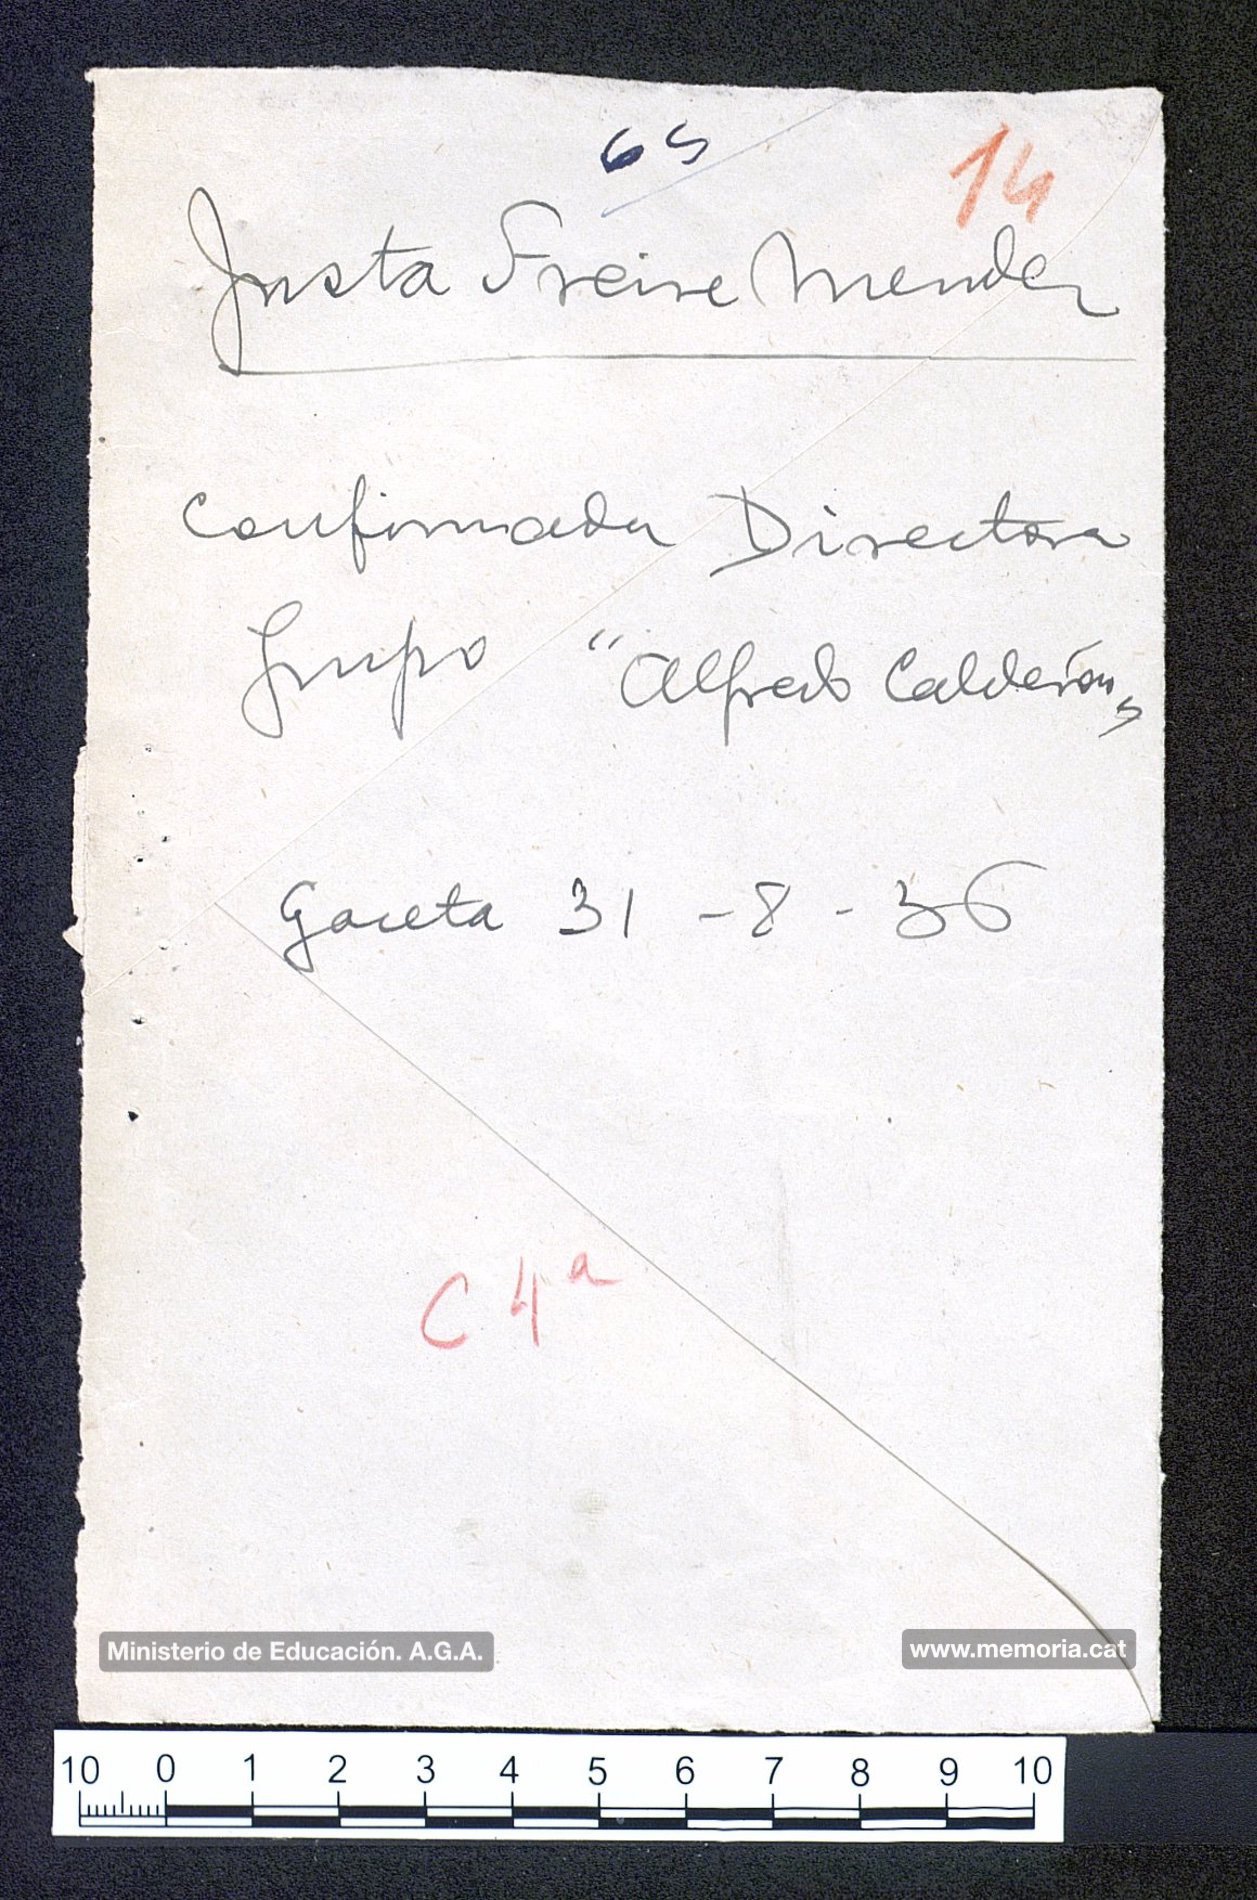 65
14
Justa Freire Mendez
Confirmada Directora
Grupo "Alfredo Calderón"
Gaceta 31 - 8 - 36
C 4ª
Ministerio de Educación. A.G.A.
www.memoria.cat
10 0 1 2 3 4 5 6 7 8 9 10